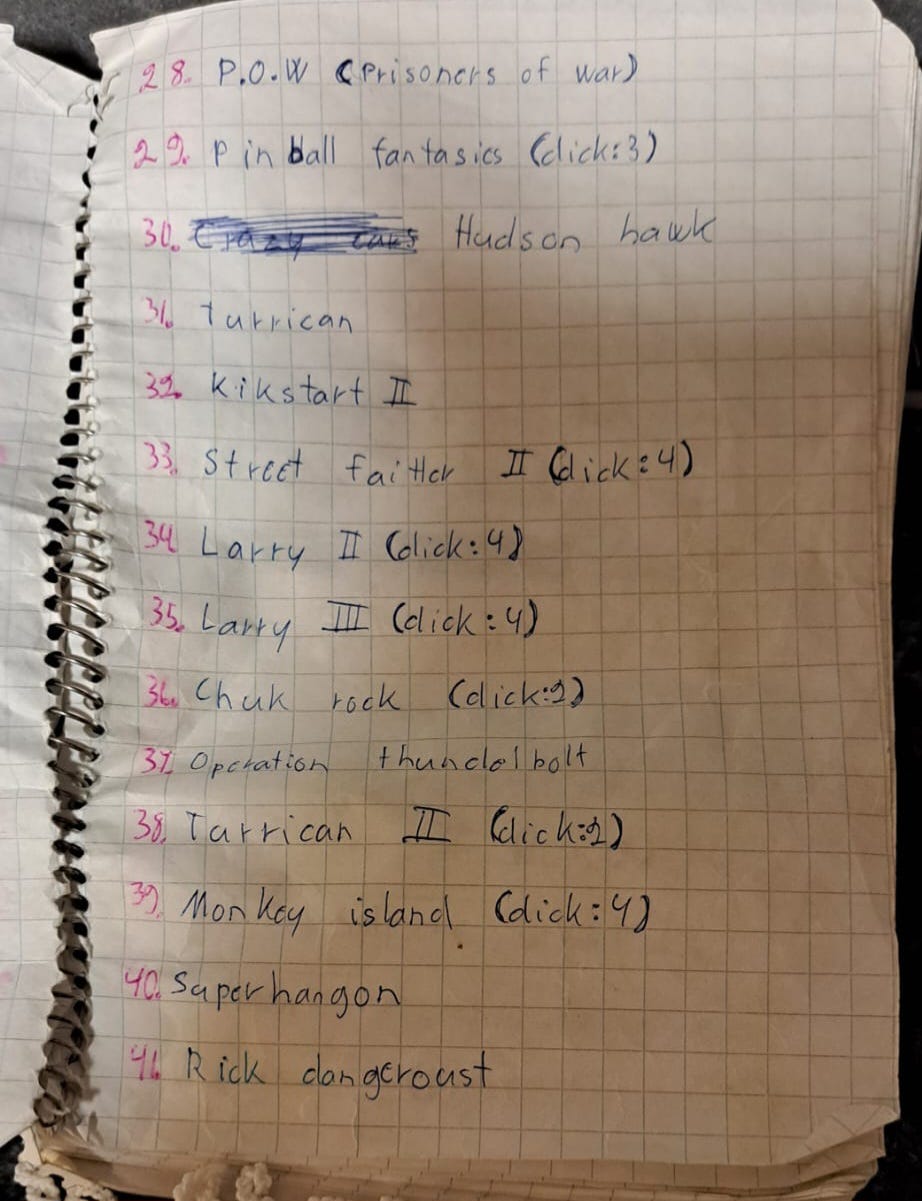 28. P.O.W (Prisoners of war)
29. Pinball fantasics (dick:3)
30. Crazy cars Hudson hawk
31. Turrican
32. Kikstart II
33. Street faitter II (dick:4)
34. Larry II (dick:4)
35. Larry III (dick:4)
36. Chuk rock (dick:2)
37. Operation thundelbolt
38. Turrican II (dick:2)
39. Monkey island (dick:4)
40. Superhangon
41. Rick dangeroust